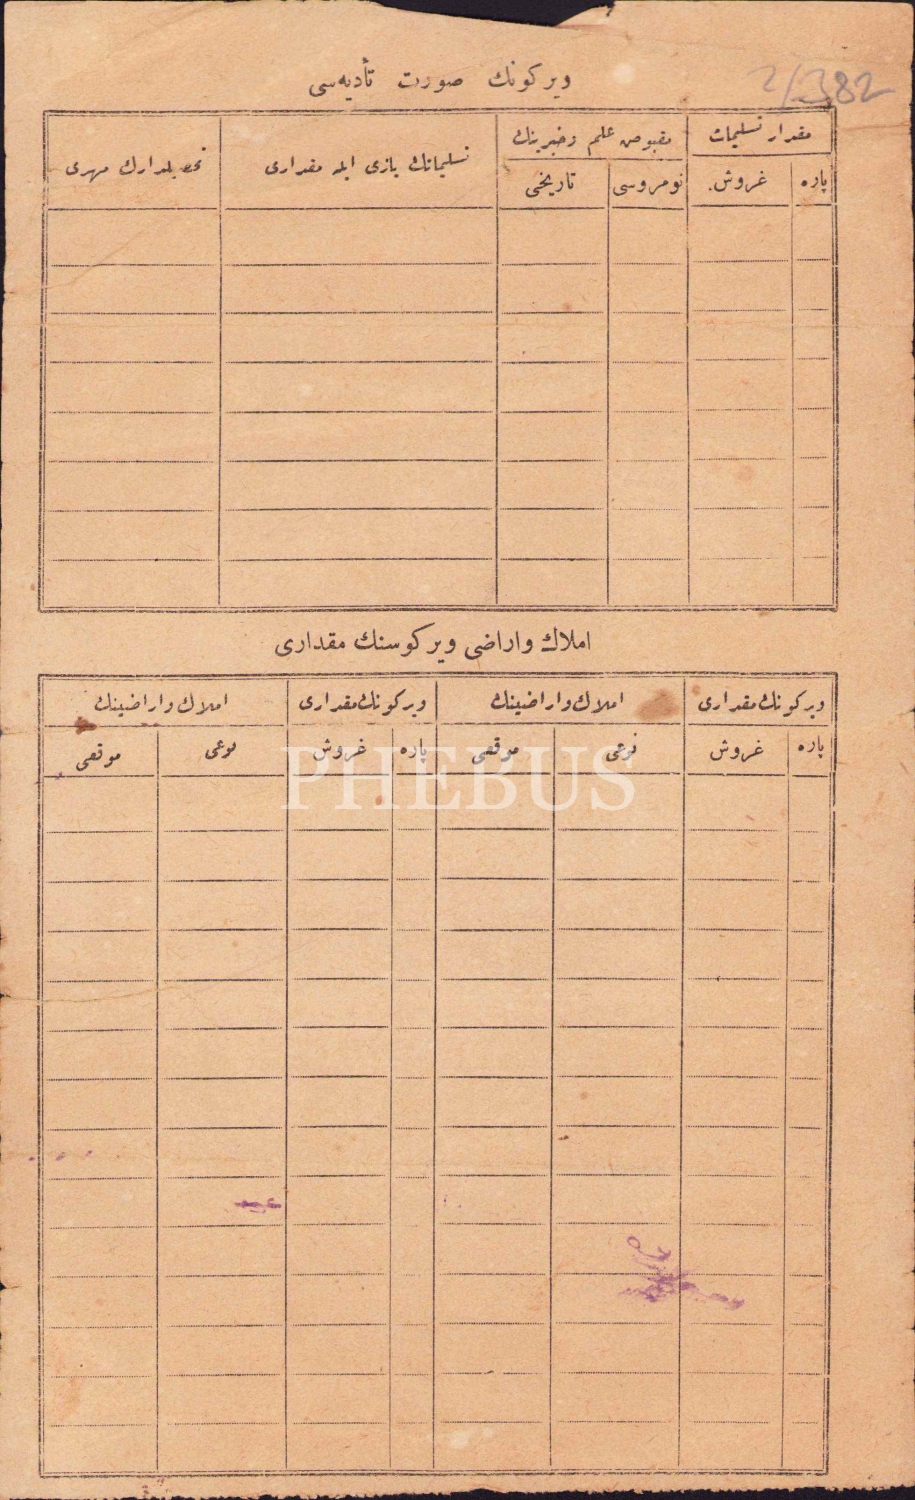 2/382
ویركونك صورت تأدیه‌سی
مقدار تسلیمات
مقبوض علم وخبرینك
تسلیماتك یازی ایله مقداری
تحصیلدارك مهری
پاره
غروش
نومروسی
تاریخی
املاك واراضی ویركوسنك مقداری
ویركونك مقداری
املاك واراضینك
ویركونك مقداری
املاك واراضینك
پاره
غروش
نوعی
موقعی
پاره
غروش
نوعی
موقعی
PHEBUS